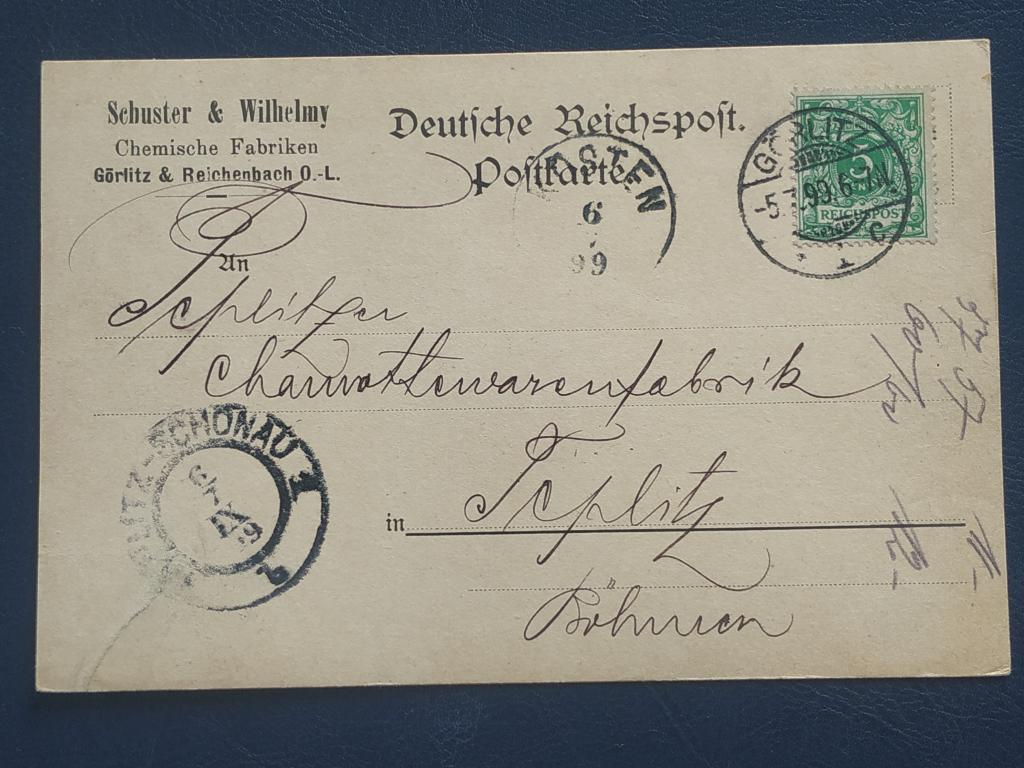 Schuster & Wilhelmy
Chemische Fabriken
Görlitz & Reichenbach O.-L.
Deutsche Reichspost.
Postkarte
6
99
GÖRLITZ
5
99.6
REICHSPOST
C
An
Teplitzer
Chamottewarenfabrik
in Teplitz
Böhmen
SCHÖNAU 1